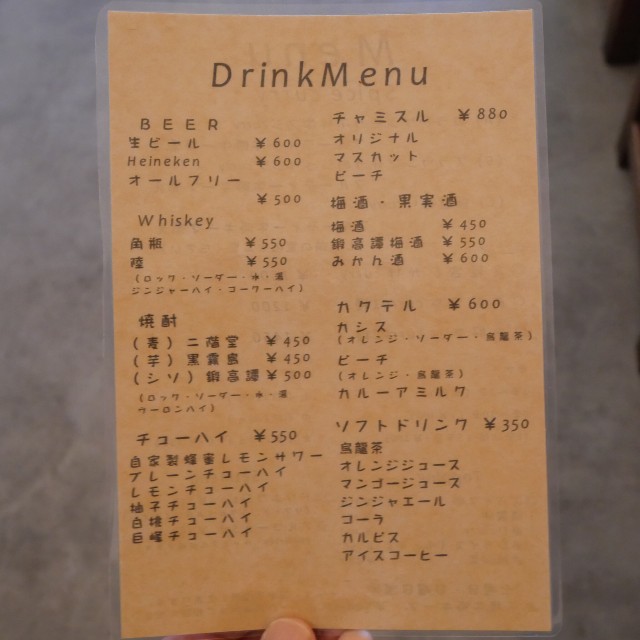 DrinkMenu
BEER
生ビール ¥600
Heineken ¥600
オールフリー
¥500
Whiskey
角瓶 ¥550
陸 ¥550
(ロック・ソーダー・水・湯
ジンジャーハイ・コークハイ)
焼酎
(麦)二階堂 ¥450
(芋)黒霧島 ¥450
(シソ)鍛高譚 ¥500
(ロック・ソーダー・水・湯
ウーロンハイ)
チューハイ ¥550
自家製蜂蜜レモンサワー
プレーンチューハイ
レモンチューハイ
柚子チューハイ
白桃チューハイ
巨峰チューハイ
チャミスル ¥880
オリジナル
マスカット
ピーチ
梅酒・果実酒
梅酒 ¥450
鍛高譚梅酒 ¥550
みかん酒 ¥600
カクテル ¥600
カシス
(オレンジ・ソーダー・烏龍茶)
ピーチ
(オレンジ・烏龍茶)
カルーアミルク
ソフトドリンク ¥350
烏龍茶
オレンジジュース
マンゴージュース
ジンジャエール
コーラ
カルピス
アイスコーヒー